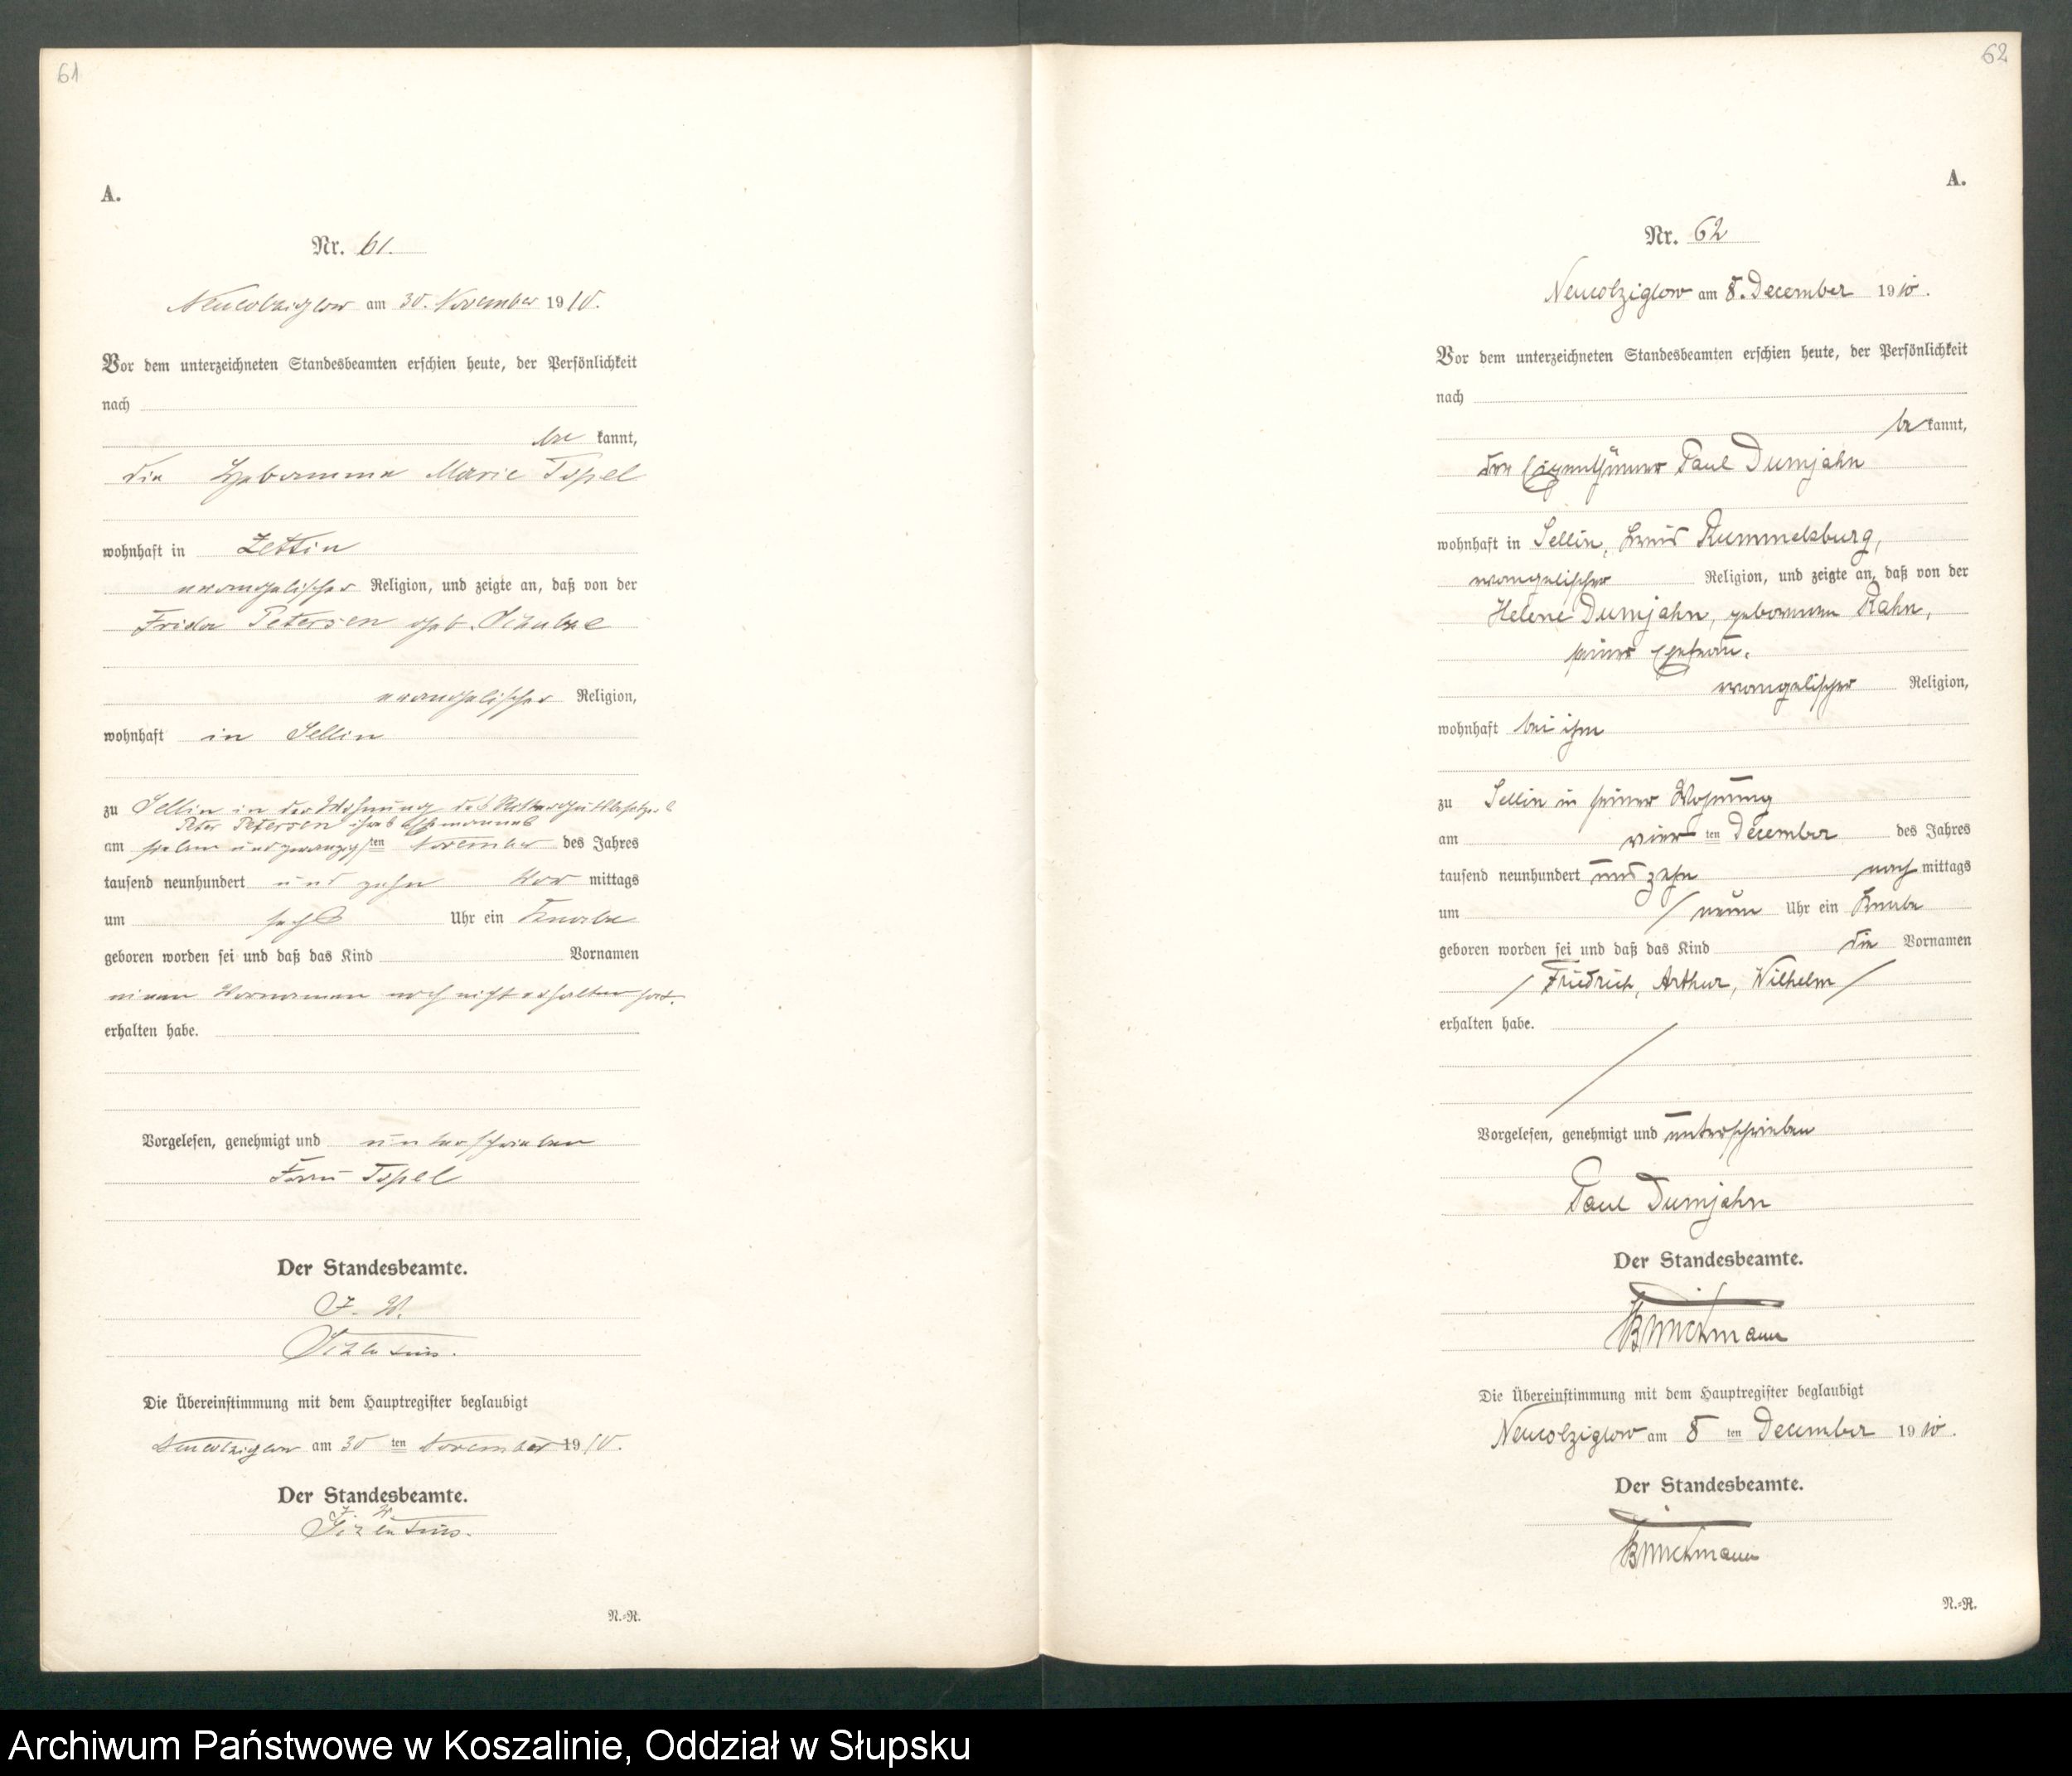 61
A.
Nr. 61.
Neukolziglow am 30. November 1910.
Vor dem unterzeichneten Standesbeamten erschien heute, der Persönlichkeit
nach
be kannt,
die Hebamme Marie Topel
wohnhaft in Zettin
evangelischer Religion, und zeigte an, daß von der
Frida Petersen geb.
evangelischer Religion,
wohnhaft in Sellin
zu Sellin in der Wohnung des Rittergutsbesitzers
Peter Petersen ihres Ehemannes
am sieben und zwanzigsten November des Jahres
tausend neunhundert und zehn Vor mittags
um sechs Uhr ein Knabe
geboren worden sei und daß das Kind Vornamen
einen Vornamen noch nicht erhalten hat.
erhalten habe.
Vorgelesen, genehmigt und unterschrieben
Frau Topel
Der Standesbeamte.
J. V.
Die Übereinstimmung mit dem Hauptregister beglaubigt
Neukolziglow am 30 ten November 1910.
Der Standesbeamte.
J. V.
N.-R.
62
A.
Nr. 62
Neucolziglow am 8. December 1910.
Vor dem unterzeichneten Standesbeamten erschien heute, der Persönlichkeit
nach
be kannt,
der Eigenthümer Paul Dumjahn
wohnhaft in Sellin, Kreis Rummelsburg,
evangelischer Religion, und zeigte an, daß von der
Helene Dumjahn, geborenen Rahn,
seiner Ehefrau,
evangelischer Religion,
wohnhaft bei ihm
zu Sellin in seiner Wohnung
am vier ten December des Jahres
tausend neunhundert und zehn nach mittags
um / neun Uhr ein Knabe
geboren worden sei und daß das Kind die Vornamen
/ Friedrich, Arthur, Wilhelm /
erhalten habe.
Vorgelesen, genehmigt und unterschrieben
Paul Dumjahn
Der Standesbeamte.
Die Übereinstimmung mit dem Hauptregister beglaubigt
Neucolziglow am 8 ten December 1910.
Der Standesbeamte.
N.-R.
Archiwum Państwowe w Koszalinie, Oddział w Słupsku